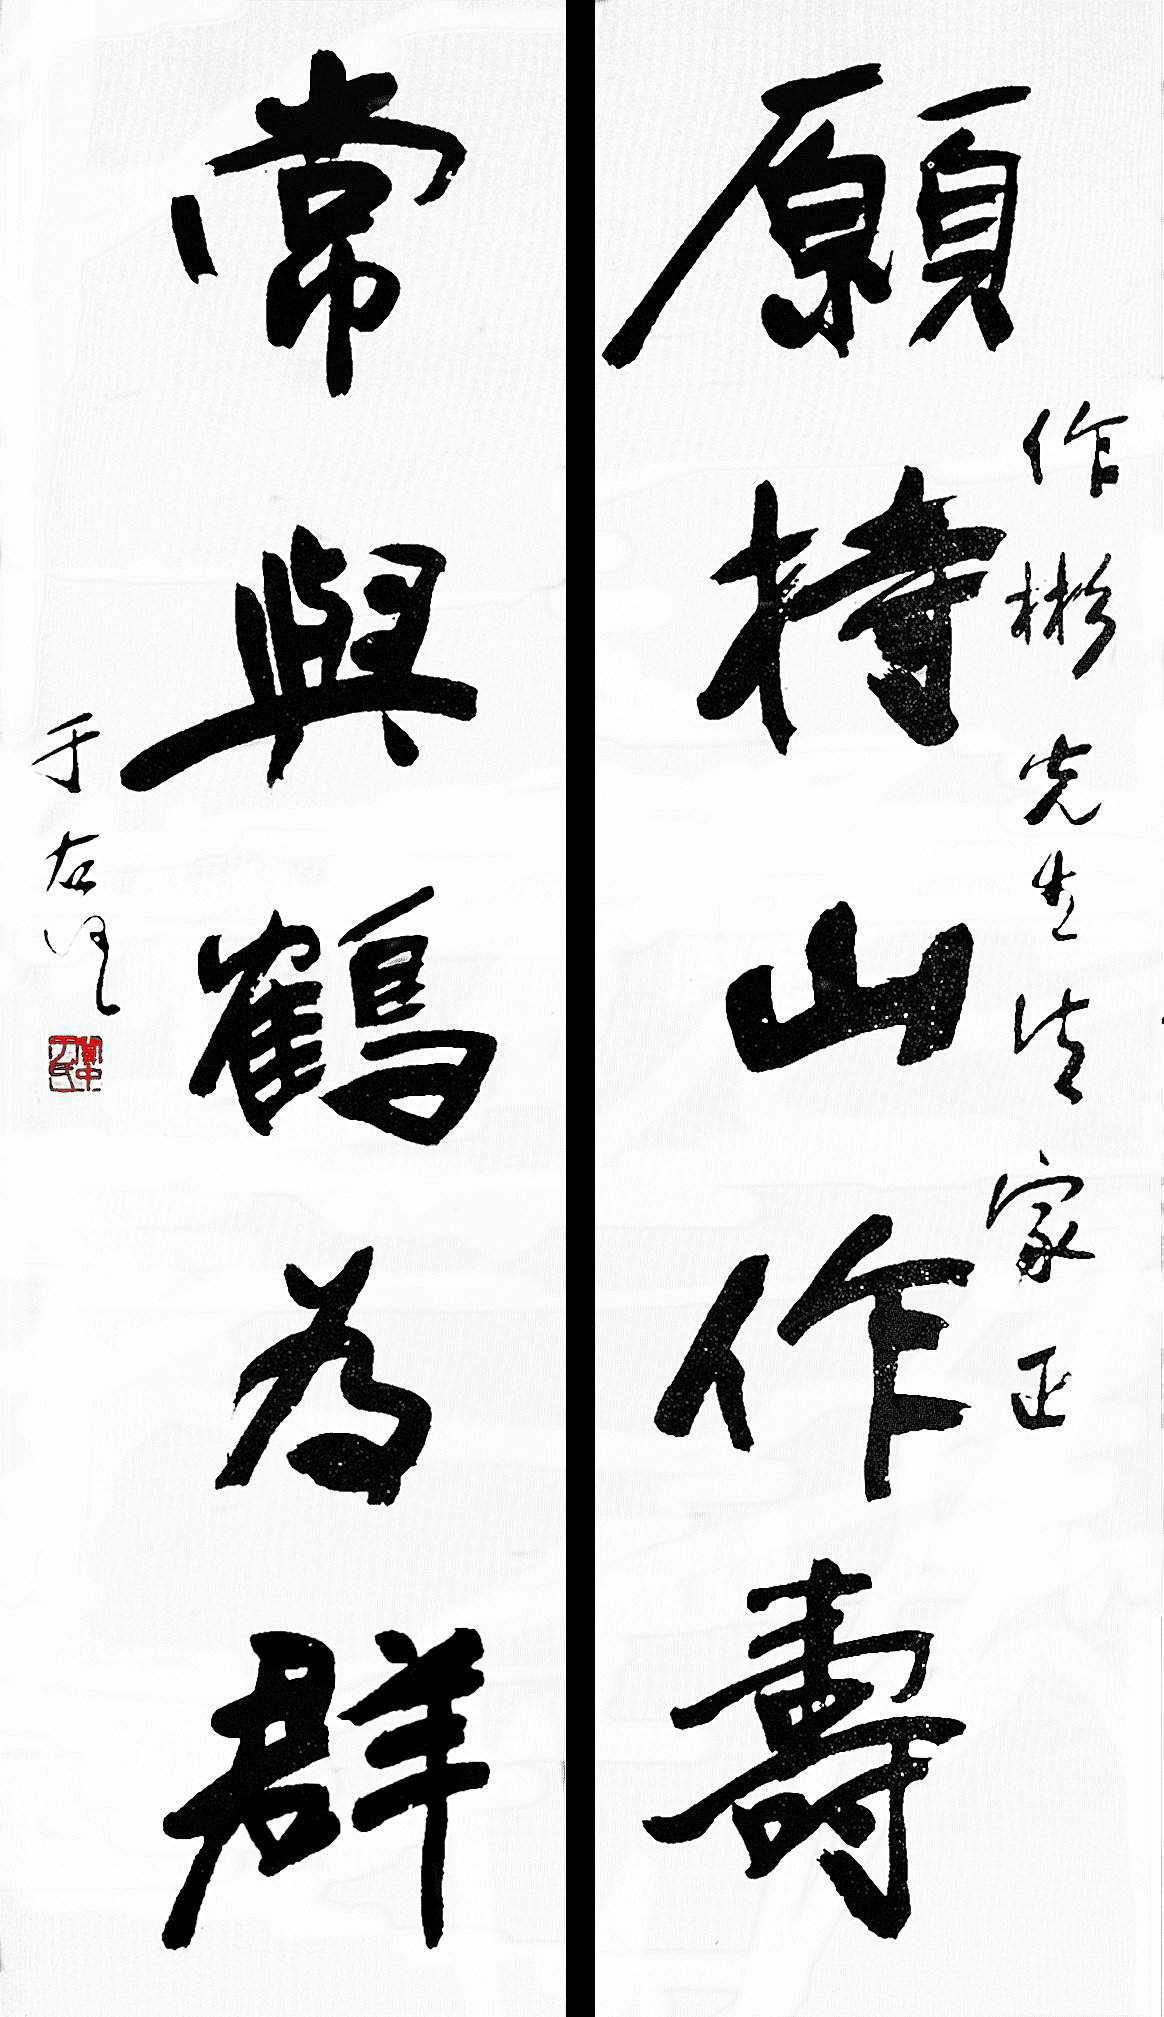 願持山作壽
作彬先生法家正
常與鶴為群
于右任